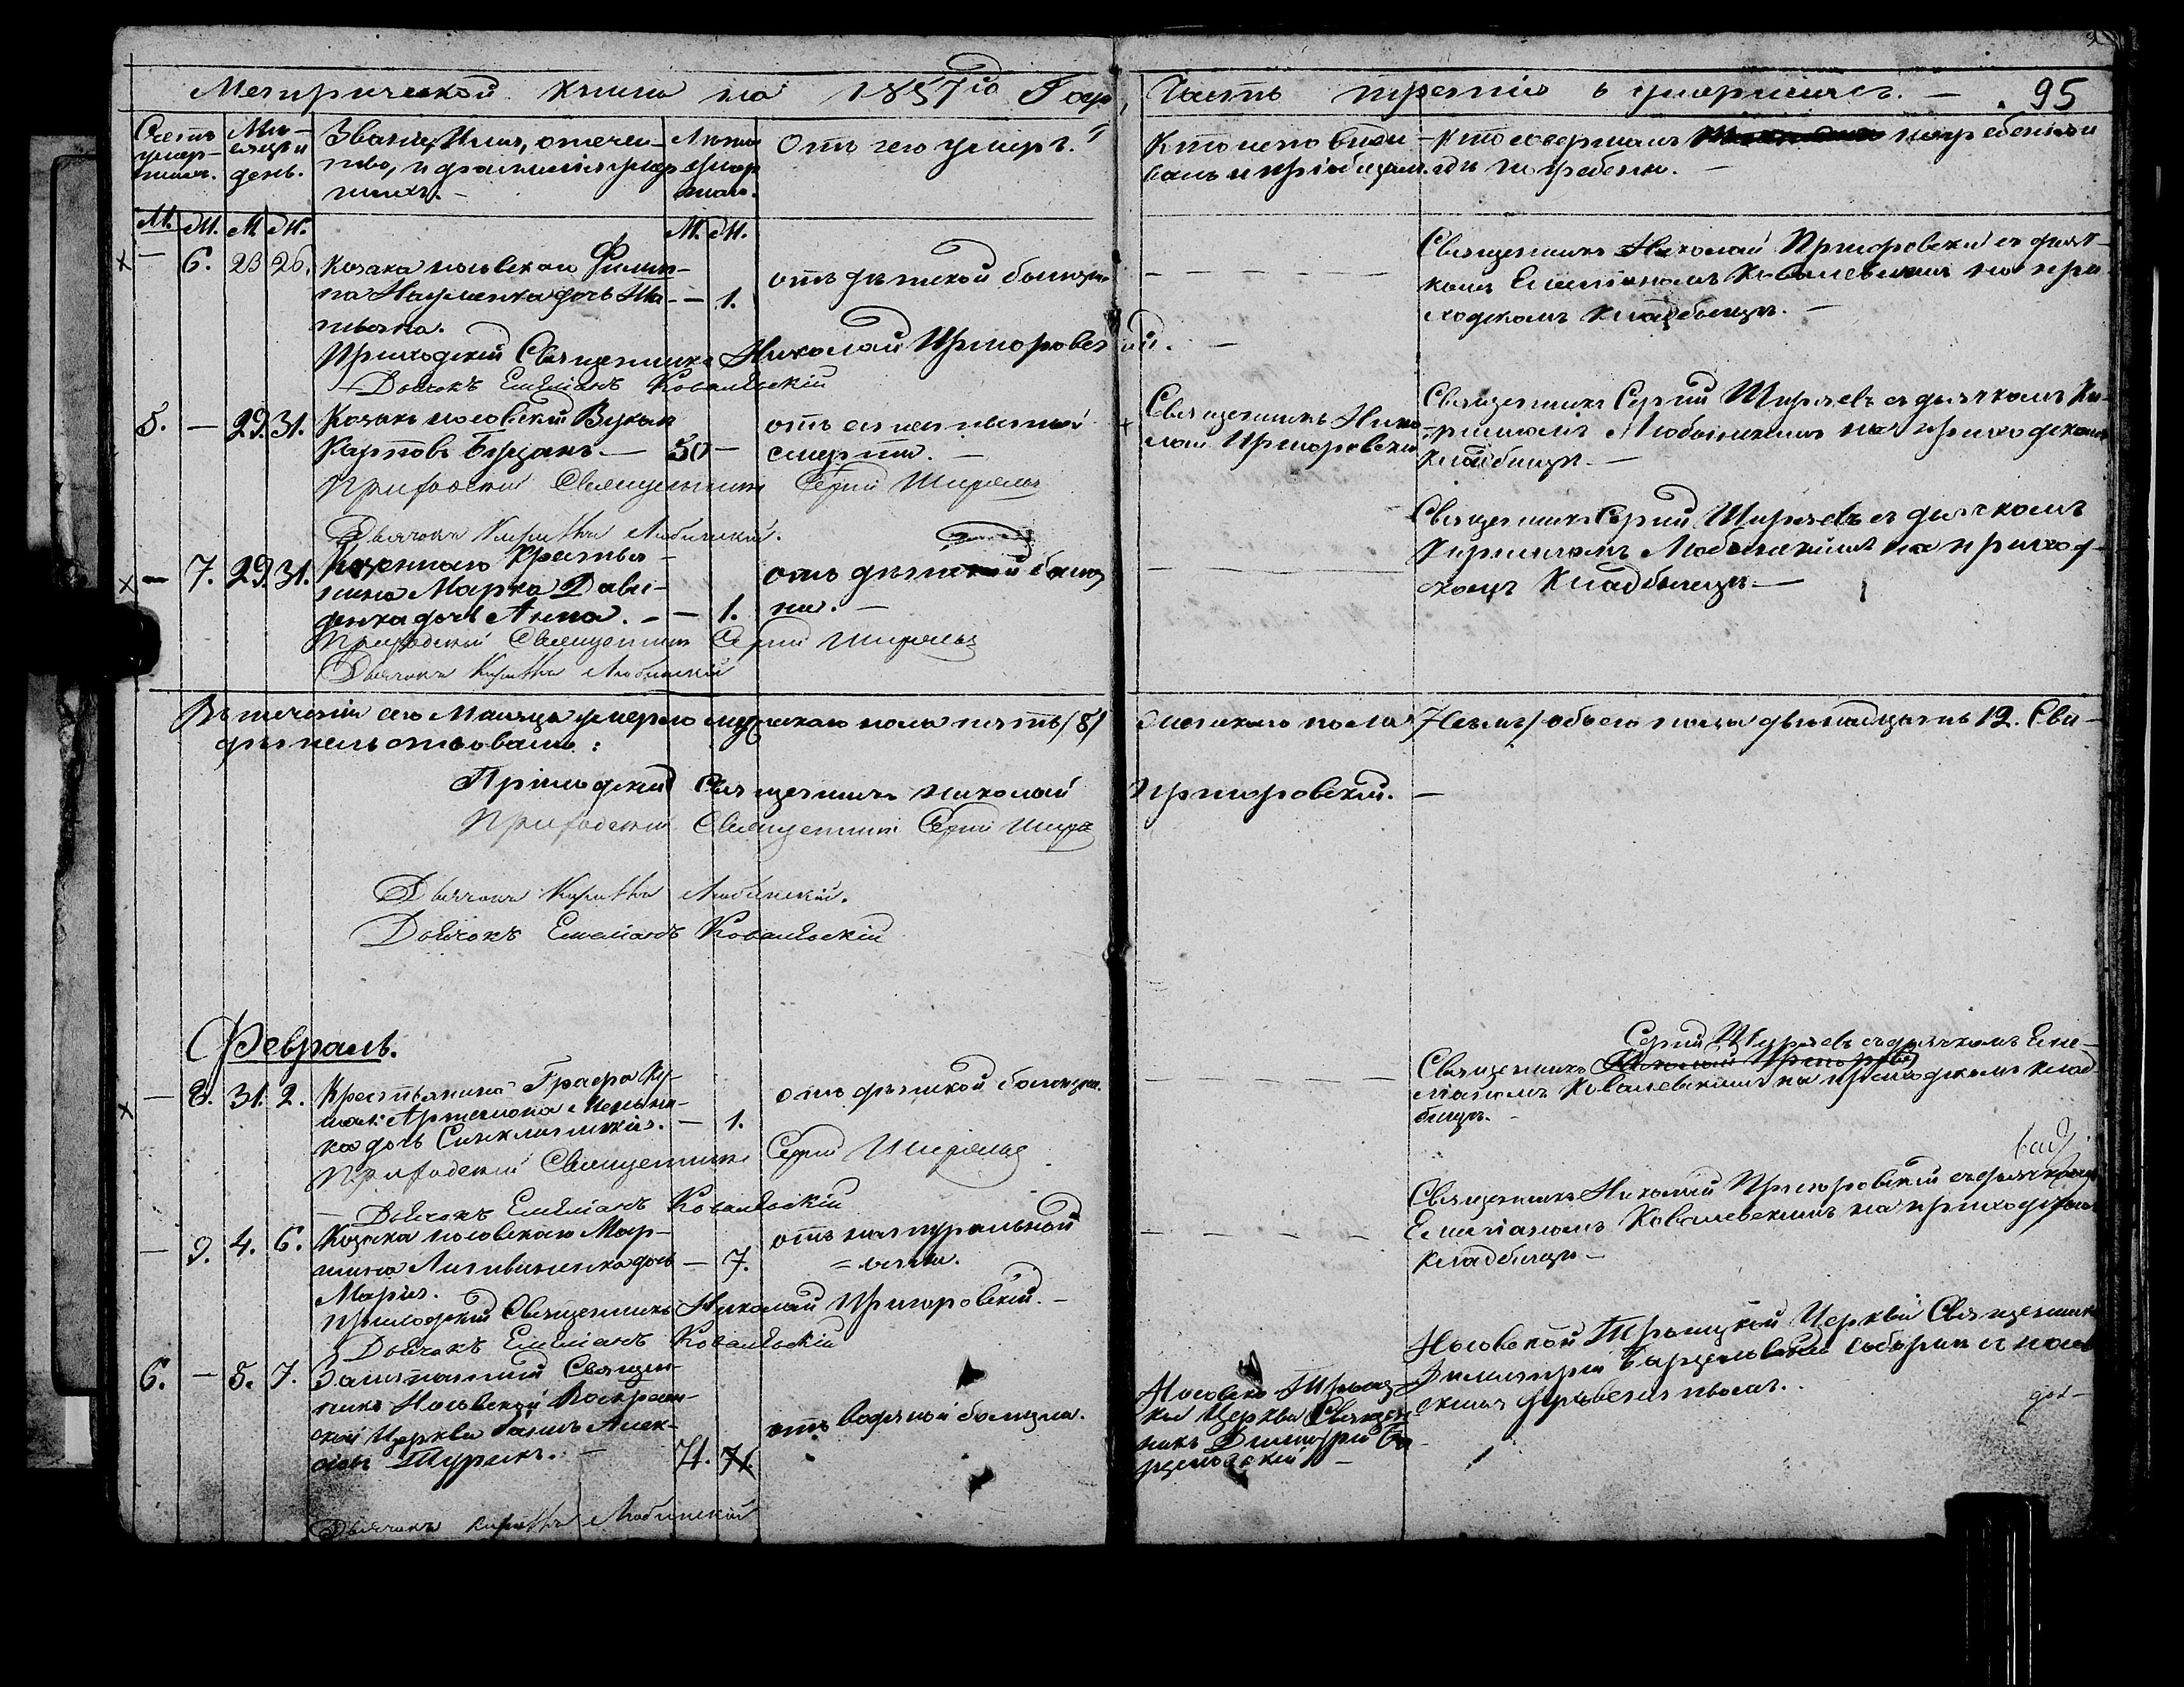 Метрической книги на 1857го Годъ, Часть третія о умершихъ. — 95
Счетъ умер-шихъ.
Мѣ-сяцъ и день.
Званіе, Имя, отечес-
тво, и фамилія умер-
шихъ. —
Лѣта умер-шаго.
Отъ чего умеръ.
Кто исповѣды-
валъ и пріобщалъ.
Кто совершалъ погребеніе и
гдѣ погребены. —
М. Ж. М. Ж.
М. Ж.
— 6. 23 26.
Козака носовскаго Филип-
па Науменка дочь Та-
тьяна.
— 1.
отъ дѣтской болѣзни
— — — — —
Священникъ Николай Пригоровскій съ дьяч-
комъ Емиліаномъ Ковалевскимъ на при-
ходскомъ кладбищѣ. —
Приходскій Священникъ Николай Пригоровскій. —
Дьячокъ Емиліанъ Ковалевскій
5. — 29. 31.
Козакъ носовскій
Карповъ —
50 —
отъ
смерти. —
Священникъ Нико-
лай Пригоровскій
Священникъ Сергій Ширяевъ съ дьячкомъ Ки-
рилломъ Любинскимъ на приходскомъ
кладбищѣ. —
Приходскій Священникъ Сергій Ширяевъ
Дьячокъ Кириллъ Любинскій.
— 7. 29. 31.
Казеннаго Крестья-
нина Марка Дави-
денка дочь Анна. —
— 1.
отъ дѣтской болѣз
ни. —
— — — — —
Священникъ Сергій Ширяевъ съ дьячкомъ
Кирилломъ Любинскимъ на приход-
скомъ Кладбищѣ —
Приходскій Священникъ Сергій Ширяевъ
Дьячокъ Кирилъ Любинскій
Въ теченіи сего Мѣсяца умерло мужескаго пола пять /5/ женскаго пола /7 семь/ обоего пола двѣнадцать 12. Сви-
дѣтельствовали:
Приходскій Священникъ Николай Пригоровскій. —
Приходскій Священникъ Сергій Ширяевъ
Дьячокъ Кирилъ Любинскій.
Дьячокъ Емеліанъ Ковалевскій
Февраль.
— 8. 31. 2.
Крестьянина Графа Ку-
шел: Артемона Мельни-
ка дочь Синклитикія.
— 1.
отъ дѣтской болѣзни.
— — — — —
Сергій Ширяевъ съ дьячкомъ Еме-
Священникъ Николай Пригоровс
ліаномъ Ковалевскимъ на приходскомъ клад
бищѣ. —
Приходскій Священникъ Сергій Ширяевъ
Дьячокъ Емиліанъ Ковалевскій
— 9. 4. 6.
Козака носовскаго Мар-
тина Литвиненка дочь
Марія.
— 7.
отъ натуральной
= оспы.
— — — — —
Священникъ Николай Пригоровскій съ дьячкомъ
Емиліаномъ Ковалевскимъ на приходскомъ
кладбищѣ —
Приходскій Священникъ Николай Пригоровскій. —
Дьячокъ Емиліанъ Ковалевскій
6. — 5. 7.
Заштатный Священ-
никъ Носовской Воскресен-
ской Церкви Іоаннъ Алек-
сіевъ Турикъ. —
74. 74.
отъ водяной болѣзни.
Носовско Троиц-
кой Церкви Священ-
никъ Димитрій Ба-
рдановскій —
Носовской Троицкой Церкви Священникъ
Димитрій соборне съ носов
скимъ духовенствомъ.
Дьячокъ Кириллъ Любинскій